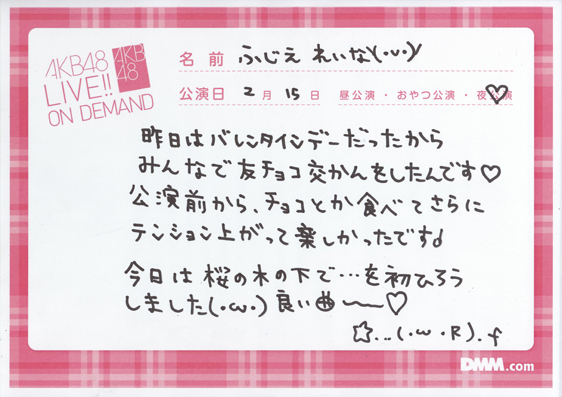 AKB48
LIVE!!
ON DEMAND
AKB
48
名 前 ふじえ れいな(・ω・)/
公演日 2月 15日 昼公演・おやつ公演・夜公演
昨日はバレンタインデーだったから
みんなで友チョコ交かんをしたんです♡
公演前から、チョコとか食べてさらに
テンション上がって楽しかったです♪
今日は桜の木の下で…を初ひろう
しました(・ω・)良い曲〜♡
☆...(・ω・R).f
DMM.com